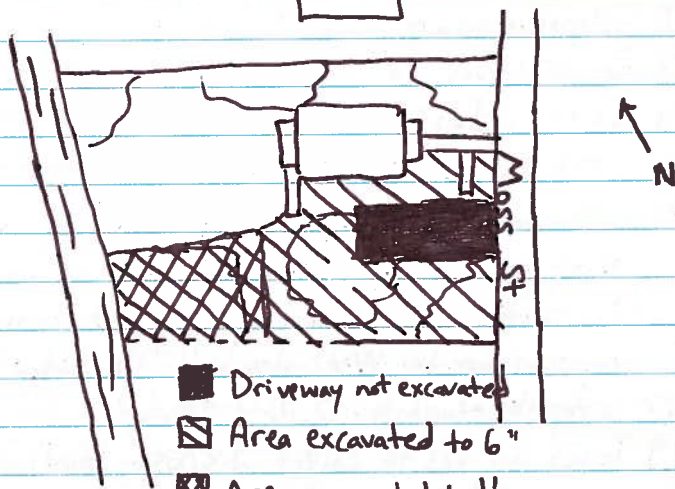 N
Moss St
Driveway not excavated
Area excavated to 6"